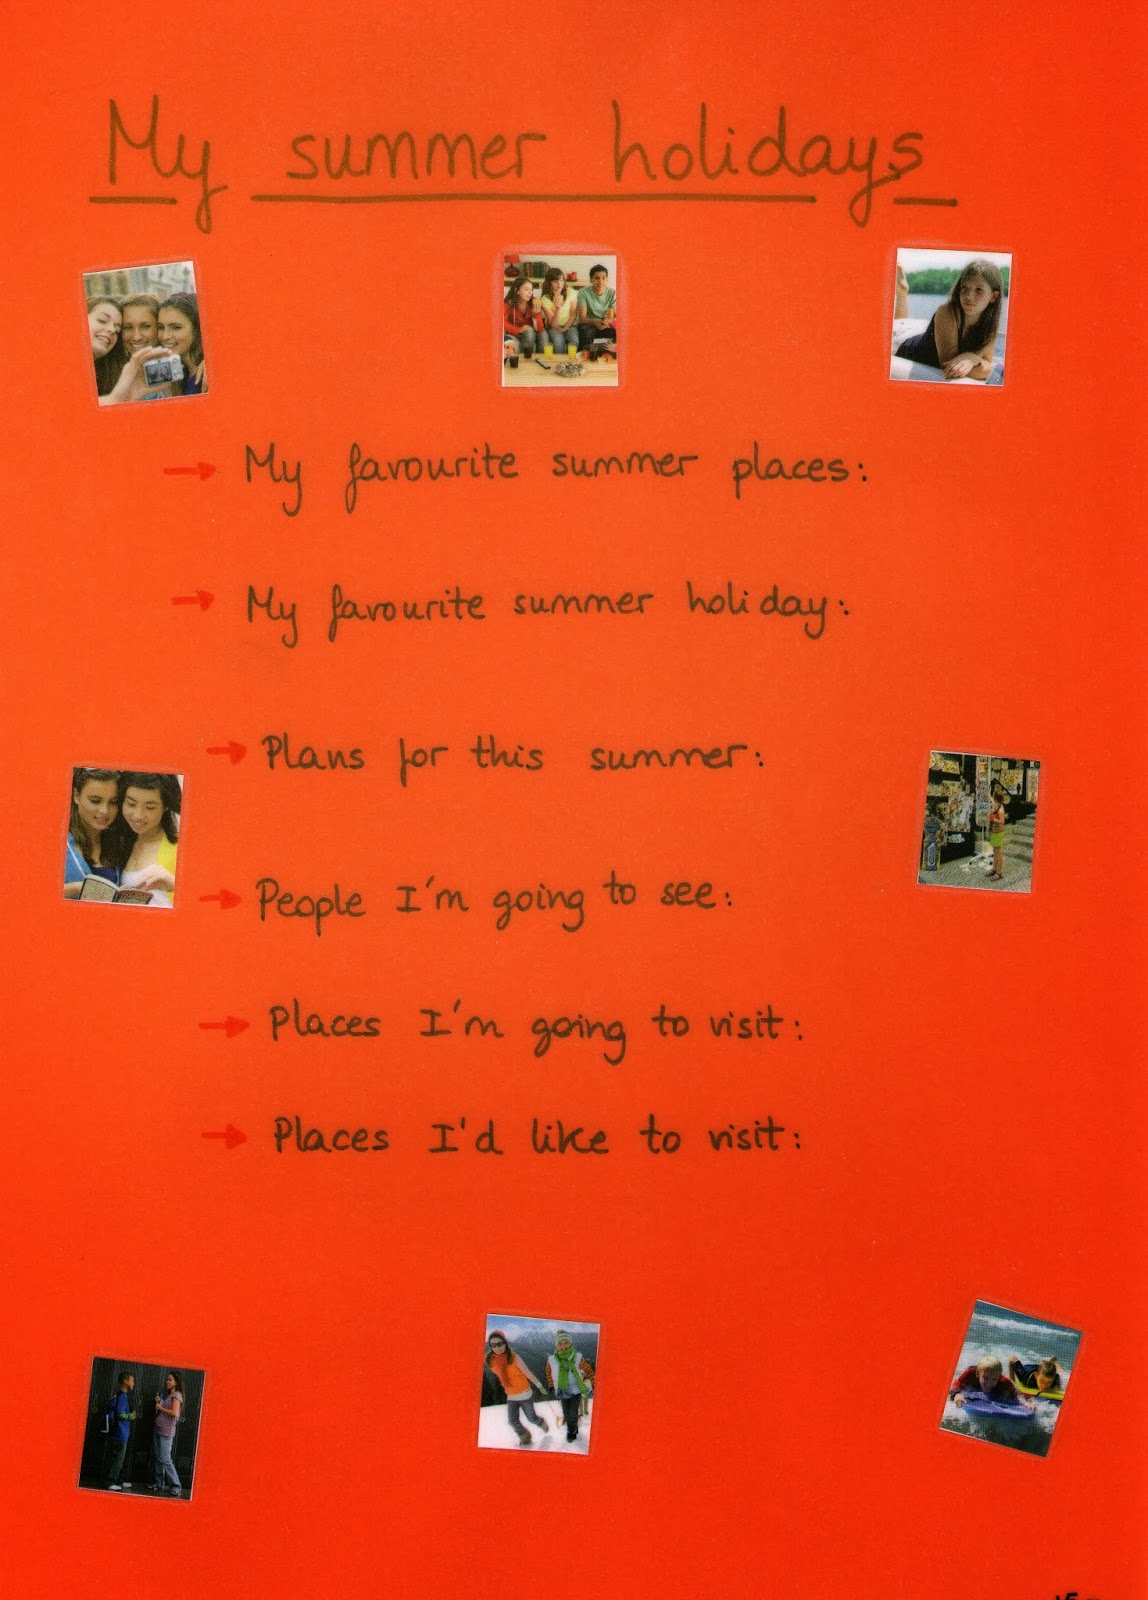 My summer holidays
→ My favourite summer places:
→ My favourite summer holiday:
→ Plans for this summer:
→ People I'm going to see:
→ Places I'm going to visit:
→ Places I'd like to visit: